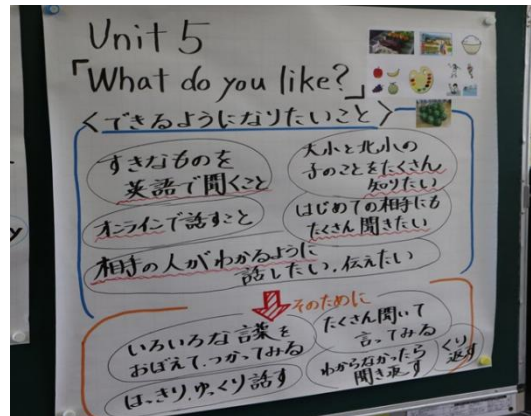 Unit 5
「What do you like?」
〈できるようになりたいこと〉
すきなものを
英語で聞くこと
大小と北小の
子のことをたくさん
知りたい
オンラインで話すこと
はじめての相手にも
たくさん聞きたい
相手の人がわかるように
話したい.伝えたい
そのために
いろいろな言葉を
おぼえて.つかってみる
たくさん聞いて
言ってみる
はっきり.ゆっくり話す
わからなかったら
聞き返す
くり
返す
y